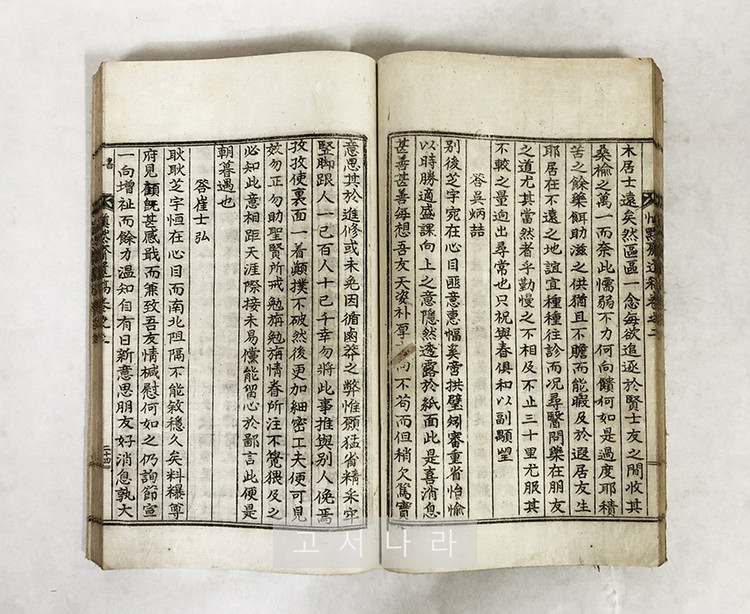 木居士遠矣然區區一念每欲追逐於賢士友之間收其
桑楡之萬一而奈此懦弱不力何向饋何如是過度耶積
苦之餘藥餌助滋之供猶且不贍而能暇及於遐居友生
耶居在不遠之地誼宜種種往診而況尋醫問藥在朋友
之道尤其當然者乎勤慢之不相及不止三十里尤服其
不較之量逈出尋常也只祝與春俱和以副願望
答吳炳喆
別後芝宇宛在心目匪意惠幅奚啻拱璧矧審重省怡愉
以時勝適盛課向上之意隱然透露於紙面此是喜消息
甚善甚善每想吾友天姿朴厚 尙不苟而但稍欠篤實
意思其於進修或未免因循鹵莽之弊惟願猛省精采牢
堅脚跟人一己百人十己千幸勿將此事推與別人俛焉
孜孜使裏面一着顚撲不破然後更加細密工夫便可見
效勿正勿助聖賢所戒勉旃勉旃情眷所注不覺猥及之
必知此意相距天涯際接未易儻能留心於鄙言此便是
朝暮遇也
答崔士弘
耿耿芝宇恒在心目而南北阻隔不能敍穩久矣料襮尊
府見顧旣甚感戢而兼致吾友情椷慰何如之仍詢節宣
一向增祉而餘力溫知自有日新意思朋友好消息孰大
書
齋遺稿卷之二
二十四
고서나라